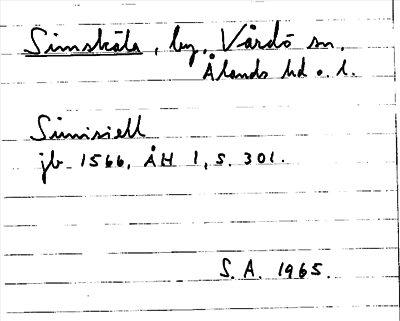 Simskäla, by, Vårdö sn,
Ålands hd o. l.
Simisiell
jb 1566, ÅH 1, s. 301.
S. A. 1965.